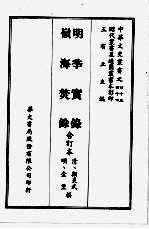 中華文史叢書之
王有立主編
明季實錄
嶺海焚餘
合訂本
清・顧炎武撰
明・金堡
華文書局股份有限公司印行